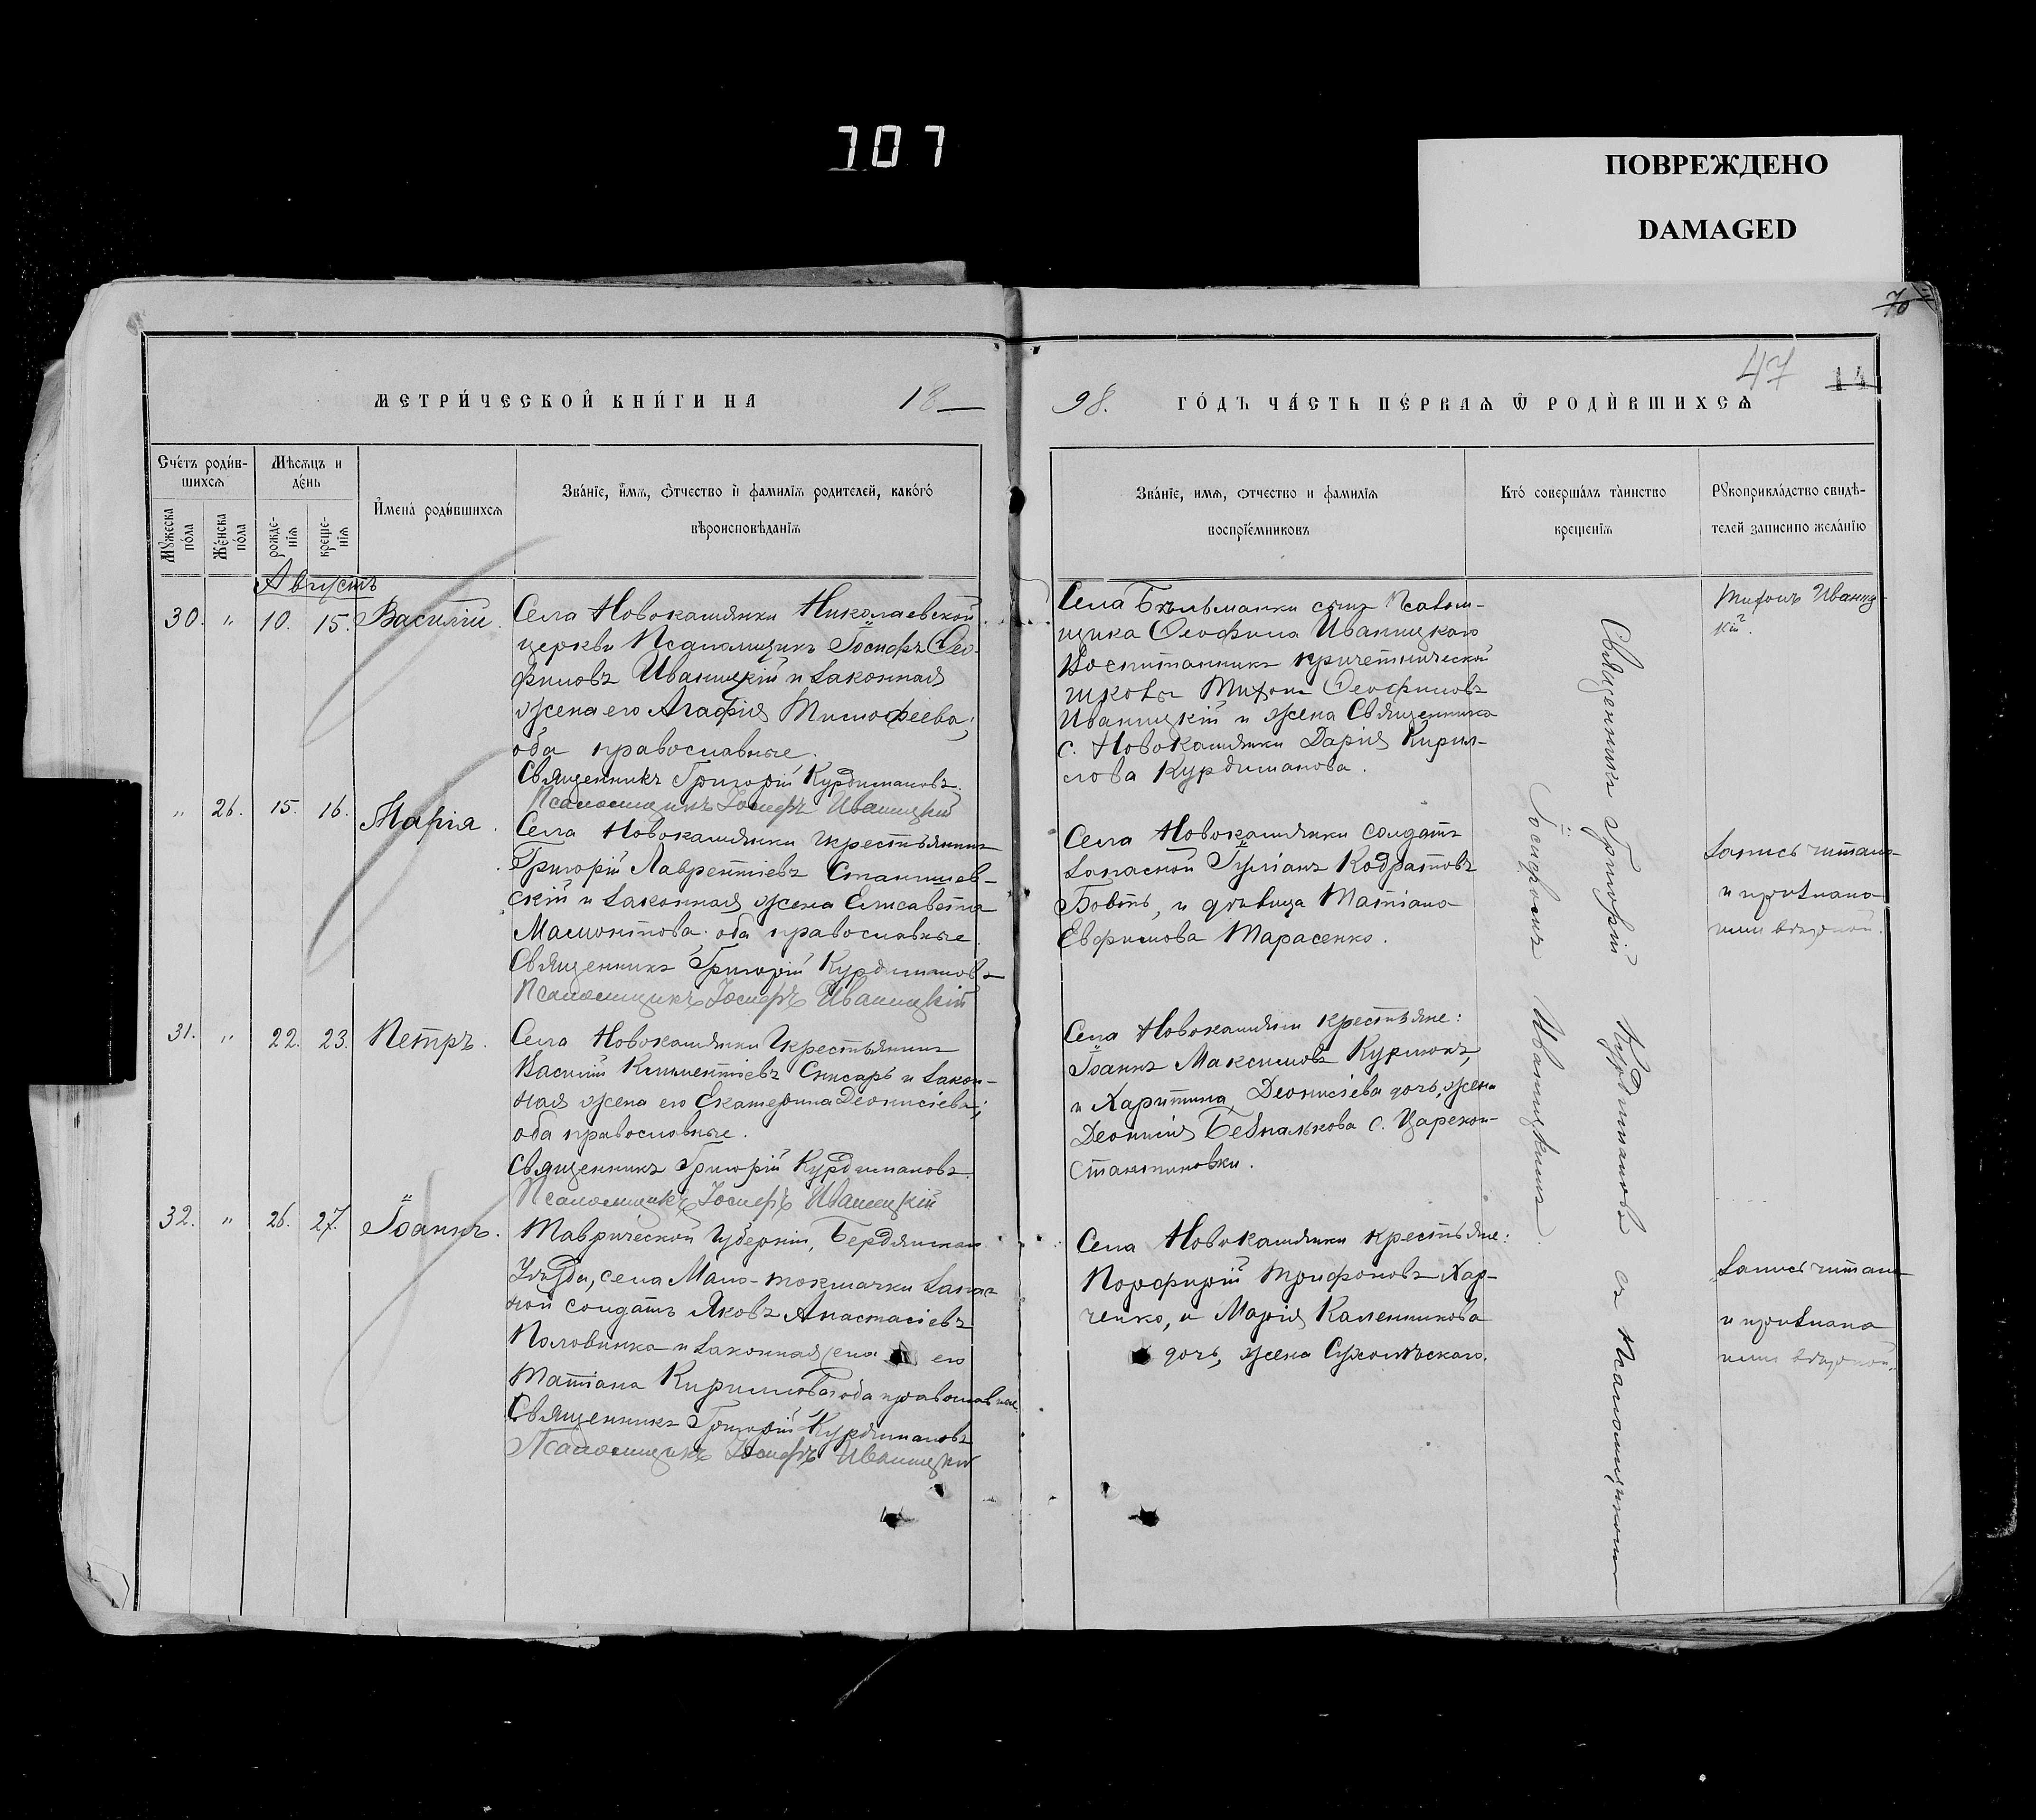 107
ПОВРЕЖДЕНО
DAMAGED
70
47 14
МЕТРИ́ЧЕСКОЙ КНИ́ГИ НА 18
98. ГО́ДЪ ЧА́СТЬ ПЕ́РВАЯ Ѿ РОДИ́ВШИХСѦ
Сче́тъ роди́в-
шихсѧ
Мѣ́сѧцъ и
де́нь
Мꙋжеска
по́ла
Же́нска
по́ла
рожде-
нїѧ
креще-
нїѧ
И҆мена̀ роди́вшихсѧ
Зва́нїе, и҆́мѧ, ѻ҆́тчество и҆ фамилїѧ родителей, како́гѡ
вѣроисповѣ́данїѧ
Зва́нїе, имѧ, ѻтчество и фамилїѧ
воспрїе́мниковъ
Кто́ соверша́лъ та̀инство
креще́нїѧ
Рꙋкоприкла́дство свидѣ́-
телей записи по жела́нїю
Августъ
30. " 10. 15. Василій.
Села Новокамянки Николаевской
церкви Псаломщикъ Іосифъ Ѳео-
филовъ Иваницкій и законная
жена его Агафія Тимофеева;
оба православные.
Священникъ Григорій Курдимановъ.
Псаломщикъ Іосифъ Иваницкій
Села Бѣльманки сынъ Псалом-
щика Ѳеофила Иваницкаго
Воспитанникъ причетнической
школы Тихонъ Ѳеофиловъ
Иваницкій и жена Священника
с. Новокамянки Дарія Кирил-
лова Курдиманова.
Тихонъ Иваниц-
кій.
" 26. 15. 16. Марія.
Села Новокамянки крестьянинъ
Григорій Лаврентіевъ Станишев-
скій и законная жена Елисавета
Мамонтова. оба православные.
Священникъ Григорій Курдимановъ
Псаломщикъ Іосифъ Иваницкій
Села Новокамянки солдатъ
запасной Іуліанъ Кодратовъ
Бовтъ, и дѣвица Татіана
Евфимова Тарасенко.
Запись читана
и признана
ими вѣрной.
31. " 22. 23. Петръ.
Села Новокамянки крестьянинъ
Василій Климентіевъ Снисарь и закон-
ная жена его Екатерина Деонисіева;
оба православные.
Священникъ Григорій Курдимановъ
Псаломщикъ Іосифъ Иваницкій
Села Новокамянки крестьяне:
Іоаннъ Максимовъ
и Харитина Деонисіева дочь, жена
Деонисія с. Царекон-
стантиновки.
32. " 26. 27. Іоаннъ.
Таврической Губерніи, Бердянскаго
Уѣзда, села Мало-токмачки запас
ной солдатъ Яковъ Анастасіевъ
Половинка и законная его
Татіана Кириллова оба православные
Священникъ Григорій Курдимановъ
Псаломщикъ Іосифъ Иваницкій
Села Новокамянки крестьяне:
Порфирій Трифоновъ Хар-
ченко, и Марія Каленникова
дочь, жена
Запись читана
и признана
ими вѣрной.
Священникъ Григорій Курдимановъ съ Псаломщикомъ
Іосифомъ Иваницкимъ